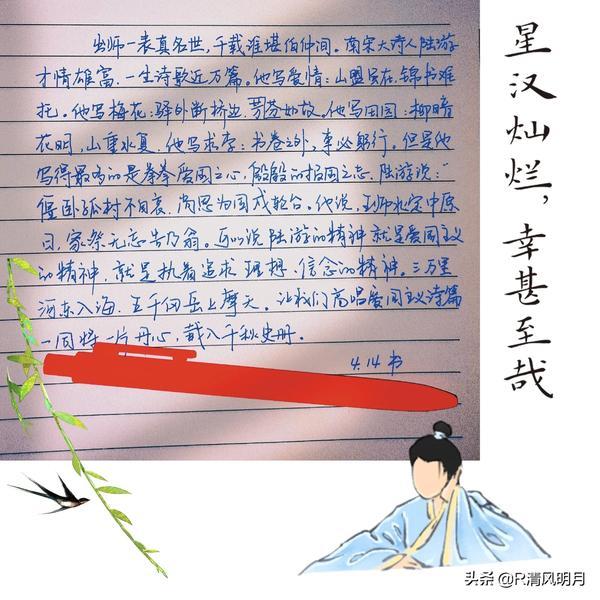 出师一表真名世,千载谁堪伯仲间。南宋大诗人陆游
才情雄富,一生诗歌近万篇。他写爱情:山盟虽在,锦书难
托。他写梅花:驿外断桥边,芬芳如故。他写田园:柳暗
花明,山重水复。他写求学:书卷之外,事必躬行。但是他
写得最多的是拳拳爱国之心,殷殷的报国之志。陆游说:“
僵卧孤村不自哀,尚思为国戍轮台。他说,王师北定中原
日,家祭无忘告乃翁。可以说陆游的精神就是爱国主义
的精神,就是执着追求理想、信念的精神。三万里
河东入海,五千仞岳上摩天。让我们高唱爱国主义诗篇
一同将一片丹心,载入千秋史册。
4.14书
星汉灿烂,幸甚至哉
头条 @R清风明月